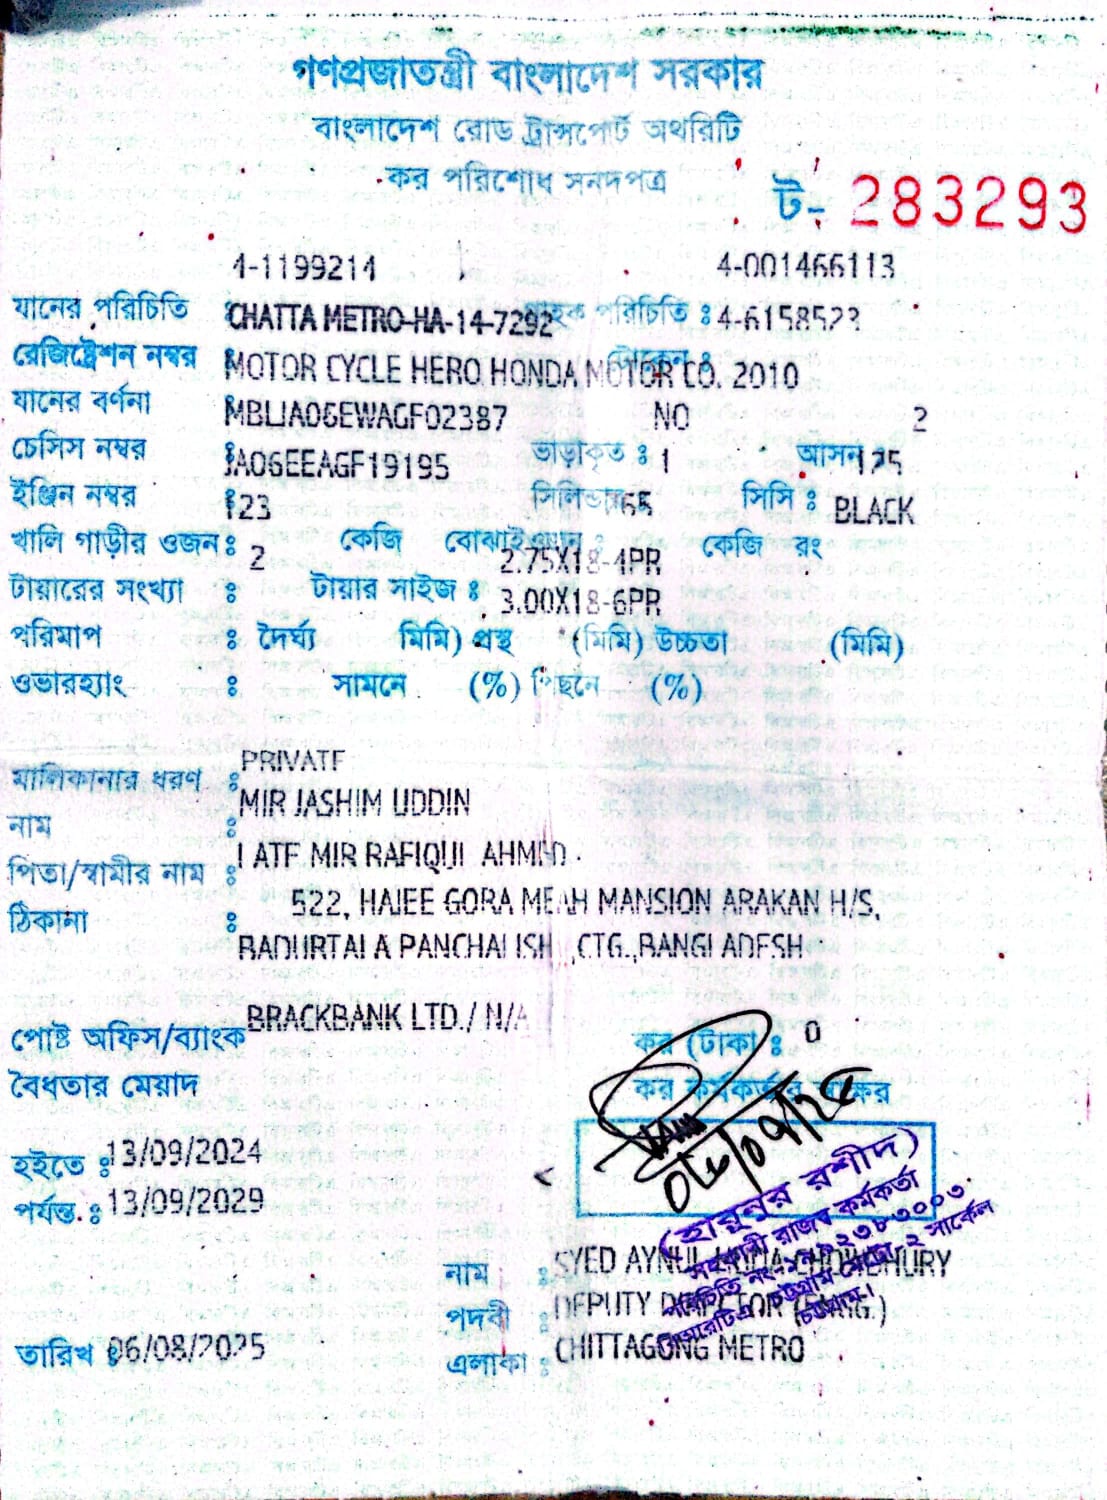 গণপ্রজাতন্ত্রী বাংলাদেশ সরকার
বাংলাদেশ রোড ট্রান্সপোর্ট অথরিটি
কর পরিশোধ সনদপত্র
ট- 283293
1-1199214 4-001466113
যানের পরিচিতি : পরিচিতি : 4-6158523
রেজিষ্ট্রেশন নম্বর : CHATTA METRO-HA-14-7292 টোকেন :
যানের বর্ণনা : MOTOR CYCLE HERO HONDA MOTOR CO. 2010
চেসিস নম্বর : MBLJA06EWAGF02387 ভাড়াকৃত : NO আসন 2
ইঞ্জিন নম্বর : JA06EEAGF19195 1 সিসি : 125
খালি গাড়ীর ওজন : 123 কেজি কেজি রং BLACK
টায়ারের সংখ্যা : 2 টায়ার সাইজ : 2.75X18-4PR
3.00X18-6PR
পরিমাপ : দৈর্ঘ্য মিমি) প্রস্থ (মিমি) উচ্চতা (মিমি)
ওভারহ্যাং : সামনে (%) পিছনে (%)
মালিকানার ধরণ : PRIVATE
নাম : MIR JASHIM UDDIN
পিতা/স্বামীর নাম : LATE MIR RAFIQUL AHMED.
ঠিকানা : 522, HAJEE GORA MEAH MANSION ARAKAN H/S,
BADURTALA PANCHALISH, CTG.,BANGLADESH
পোষ্ট অফিস/ব্যাংক BRACKBANK LTD./ N/A কর (টাকা : 0
বৈধতার মেয়াদ কর কর্মকর্তার স্বাক্ষর
হইতে : 13/09/2024
পর্যন্ত : 13/09/2029
(হারুনুর রশীদ)
সহকারী রাজস্ব কর্মকর্তা
নাম : SYED AYNUL HUDA CHOWDHURY
পদবী : DEPUTY DIRECTOR (ENGG.)
তারিখ : 06/08/2025 এলাকা : CHITTAGONG METRO